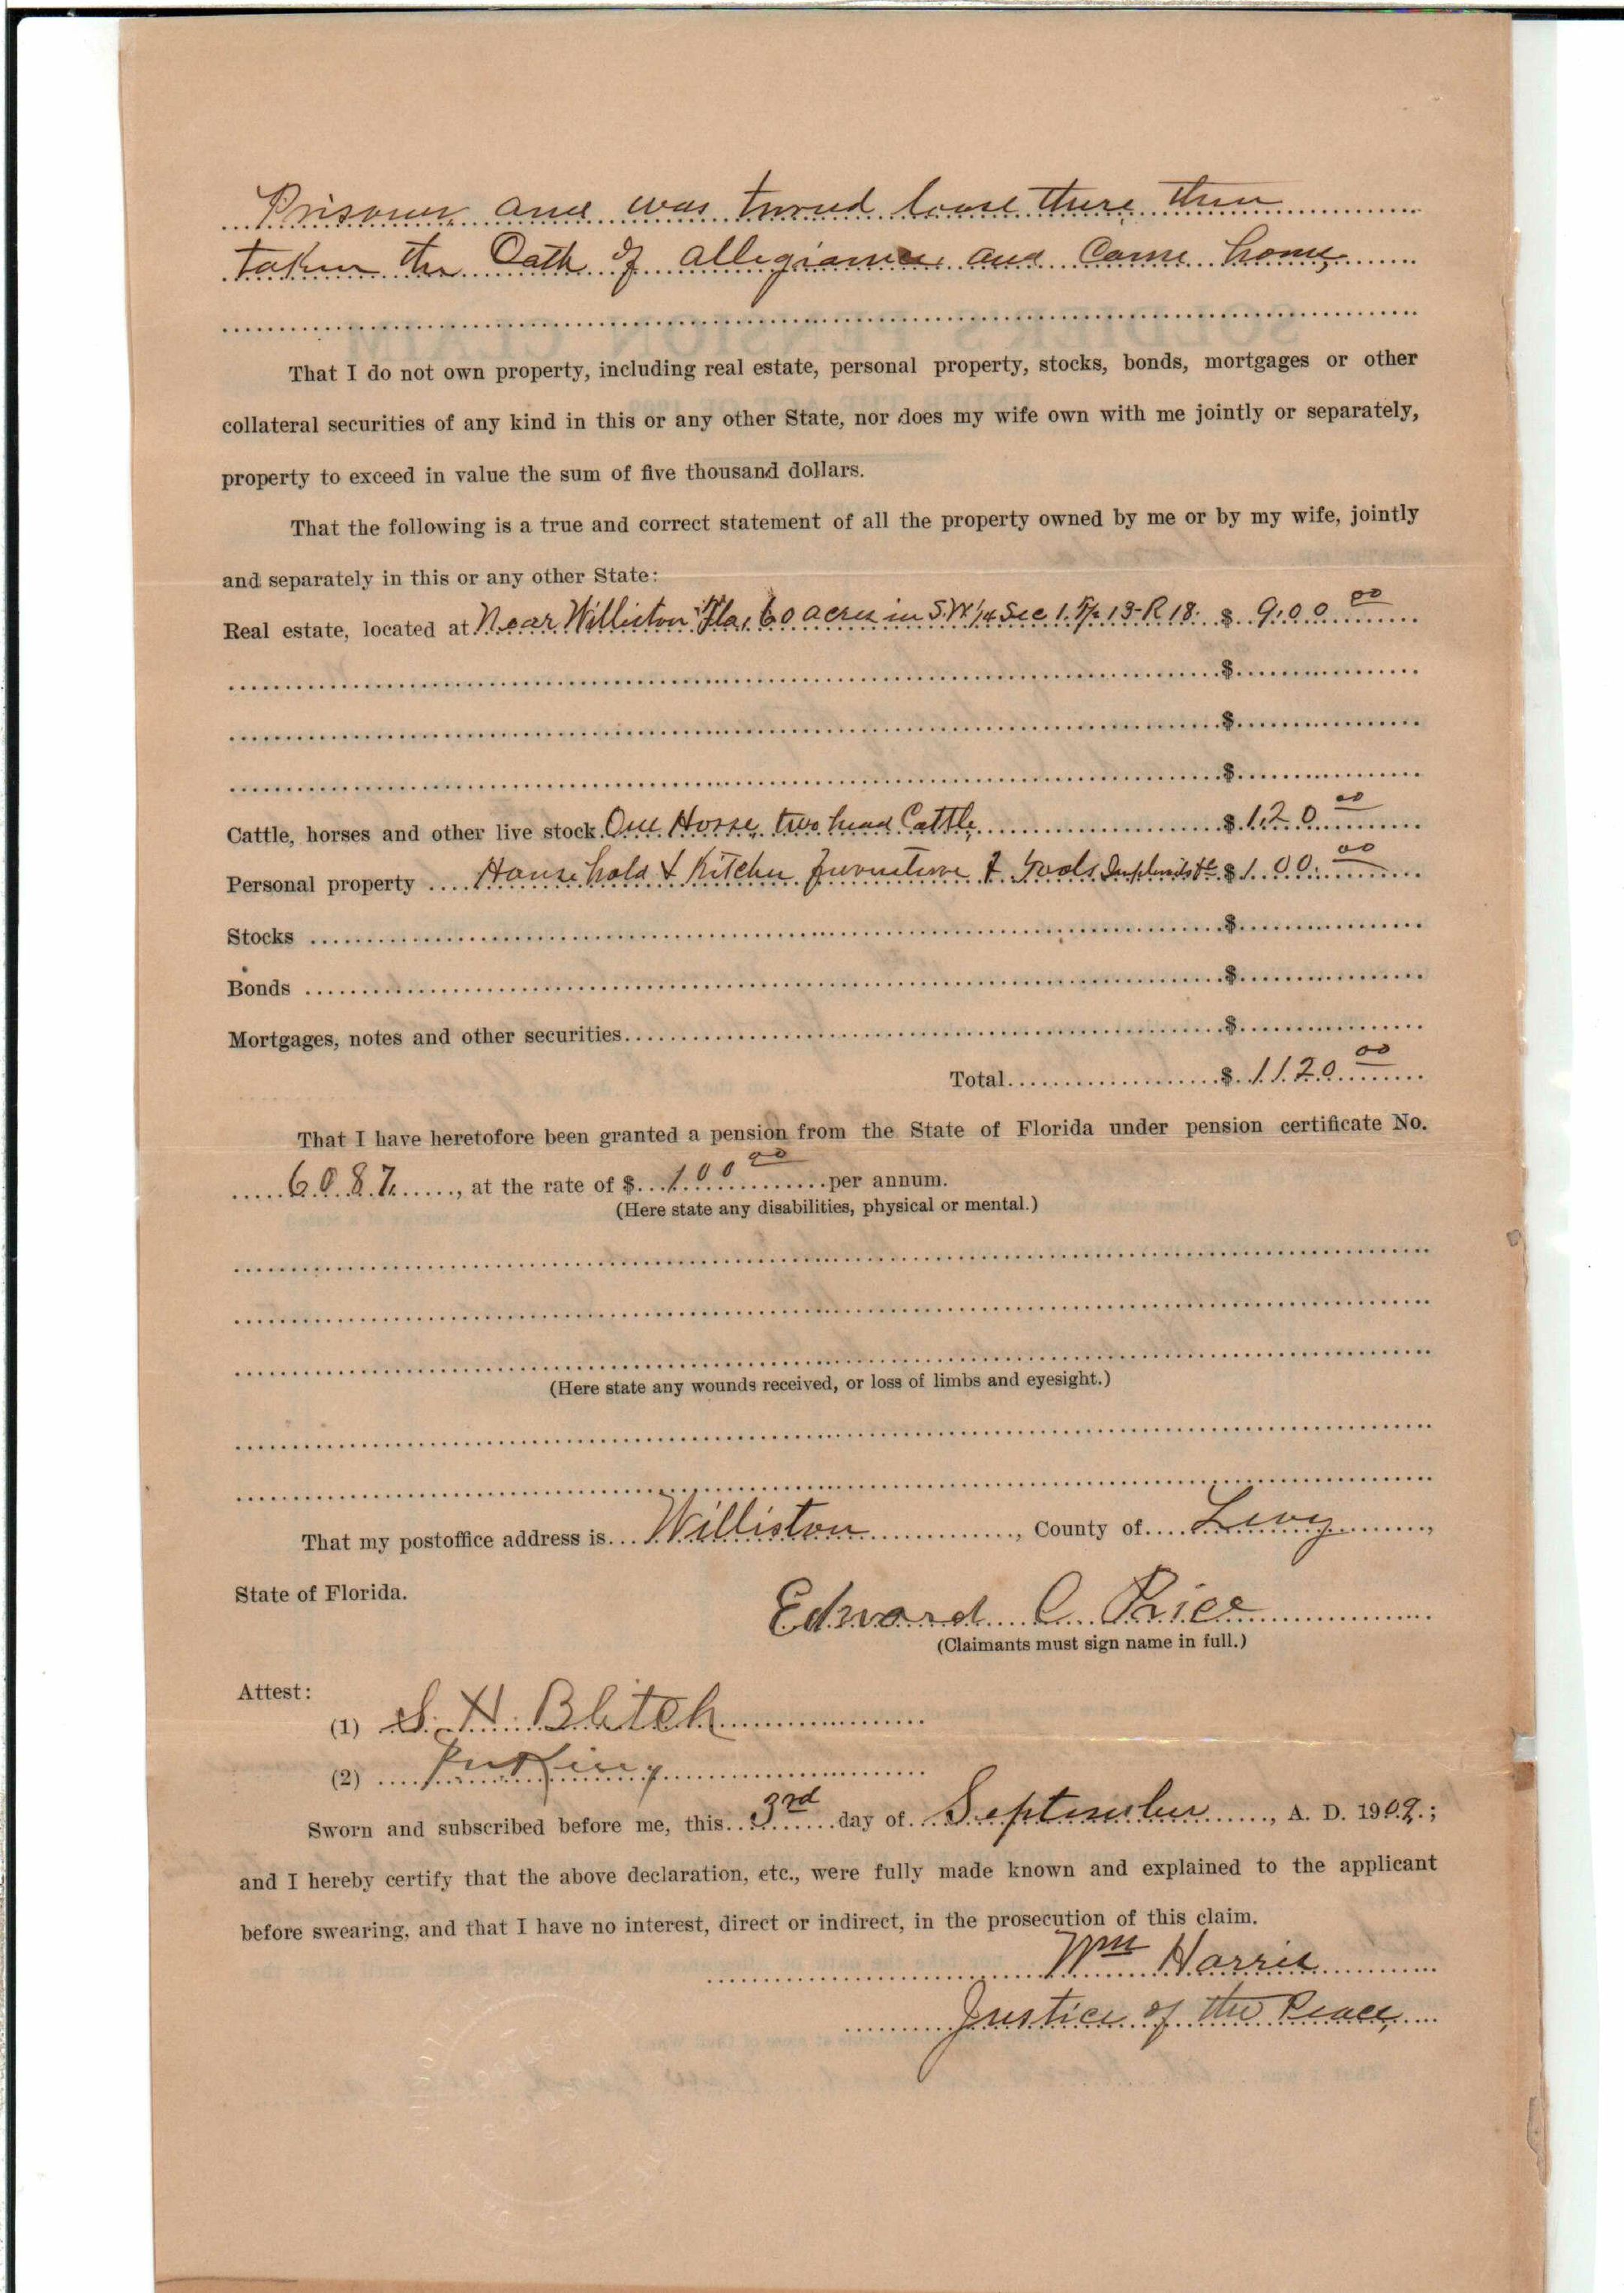 Prisoner and was turned loose there then
taken the Oath of allegiance and Came home,
That I do not own property, including real estate, personal property, stocks, bonds, mortgages or other
collateral securities of any kind in this or any other State, nor does my wife own with me jointly or separately,
property to exceed in value the sum of five thousand dollars.
That the following is a true and correct statement of all the property owned by me or by my wife, jointly
and separately in this or any other State:
Real estate, located at Near Williston Fla, 60 acres in S.W 1/4 Sec 1. Tp 13-R 18. $ 900 00
$
$
$
Cattle, horses and other live stock One Horse, two head Cattle $ 120 00
Personal property Household & Kitchen furniture & Tools Implmts &c $ 100 00
Stocks $
Bonds $
Mortgages, notes and other securities $
Total $ 1120 00
That I have heretofore been granted a pension from the State of Florida under pension certificate No.
6087, at the rate of $ 100 00 per annum.
(Here state any disabilities, physical or mental.)
(Here state any wounds received, or loss of limbs and eyesight.)
That my postoffice address is Williston, County of Levy,
State of Florida.
Edward C Price
(Claimants must sign name in full.)
Attest:
(1) S. H. Blitch
(2) King
Sworn and subscribed before me, this 3rd day of September, A. D. 1909.;
and I hereby certify that the above declaration, etc., were fully made known and explained to the applicant
before swearing, and that I have no interest, direct or indirect, in the prosecution of this claim.
Wm Harris
Justice of the Peace,